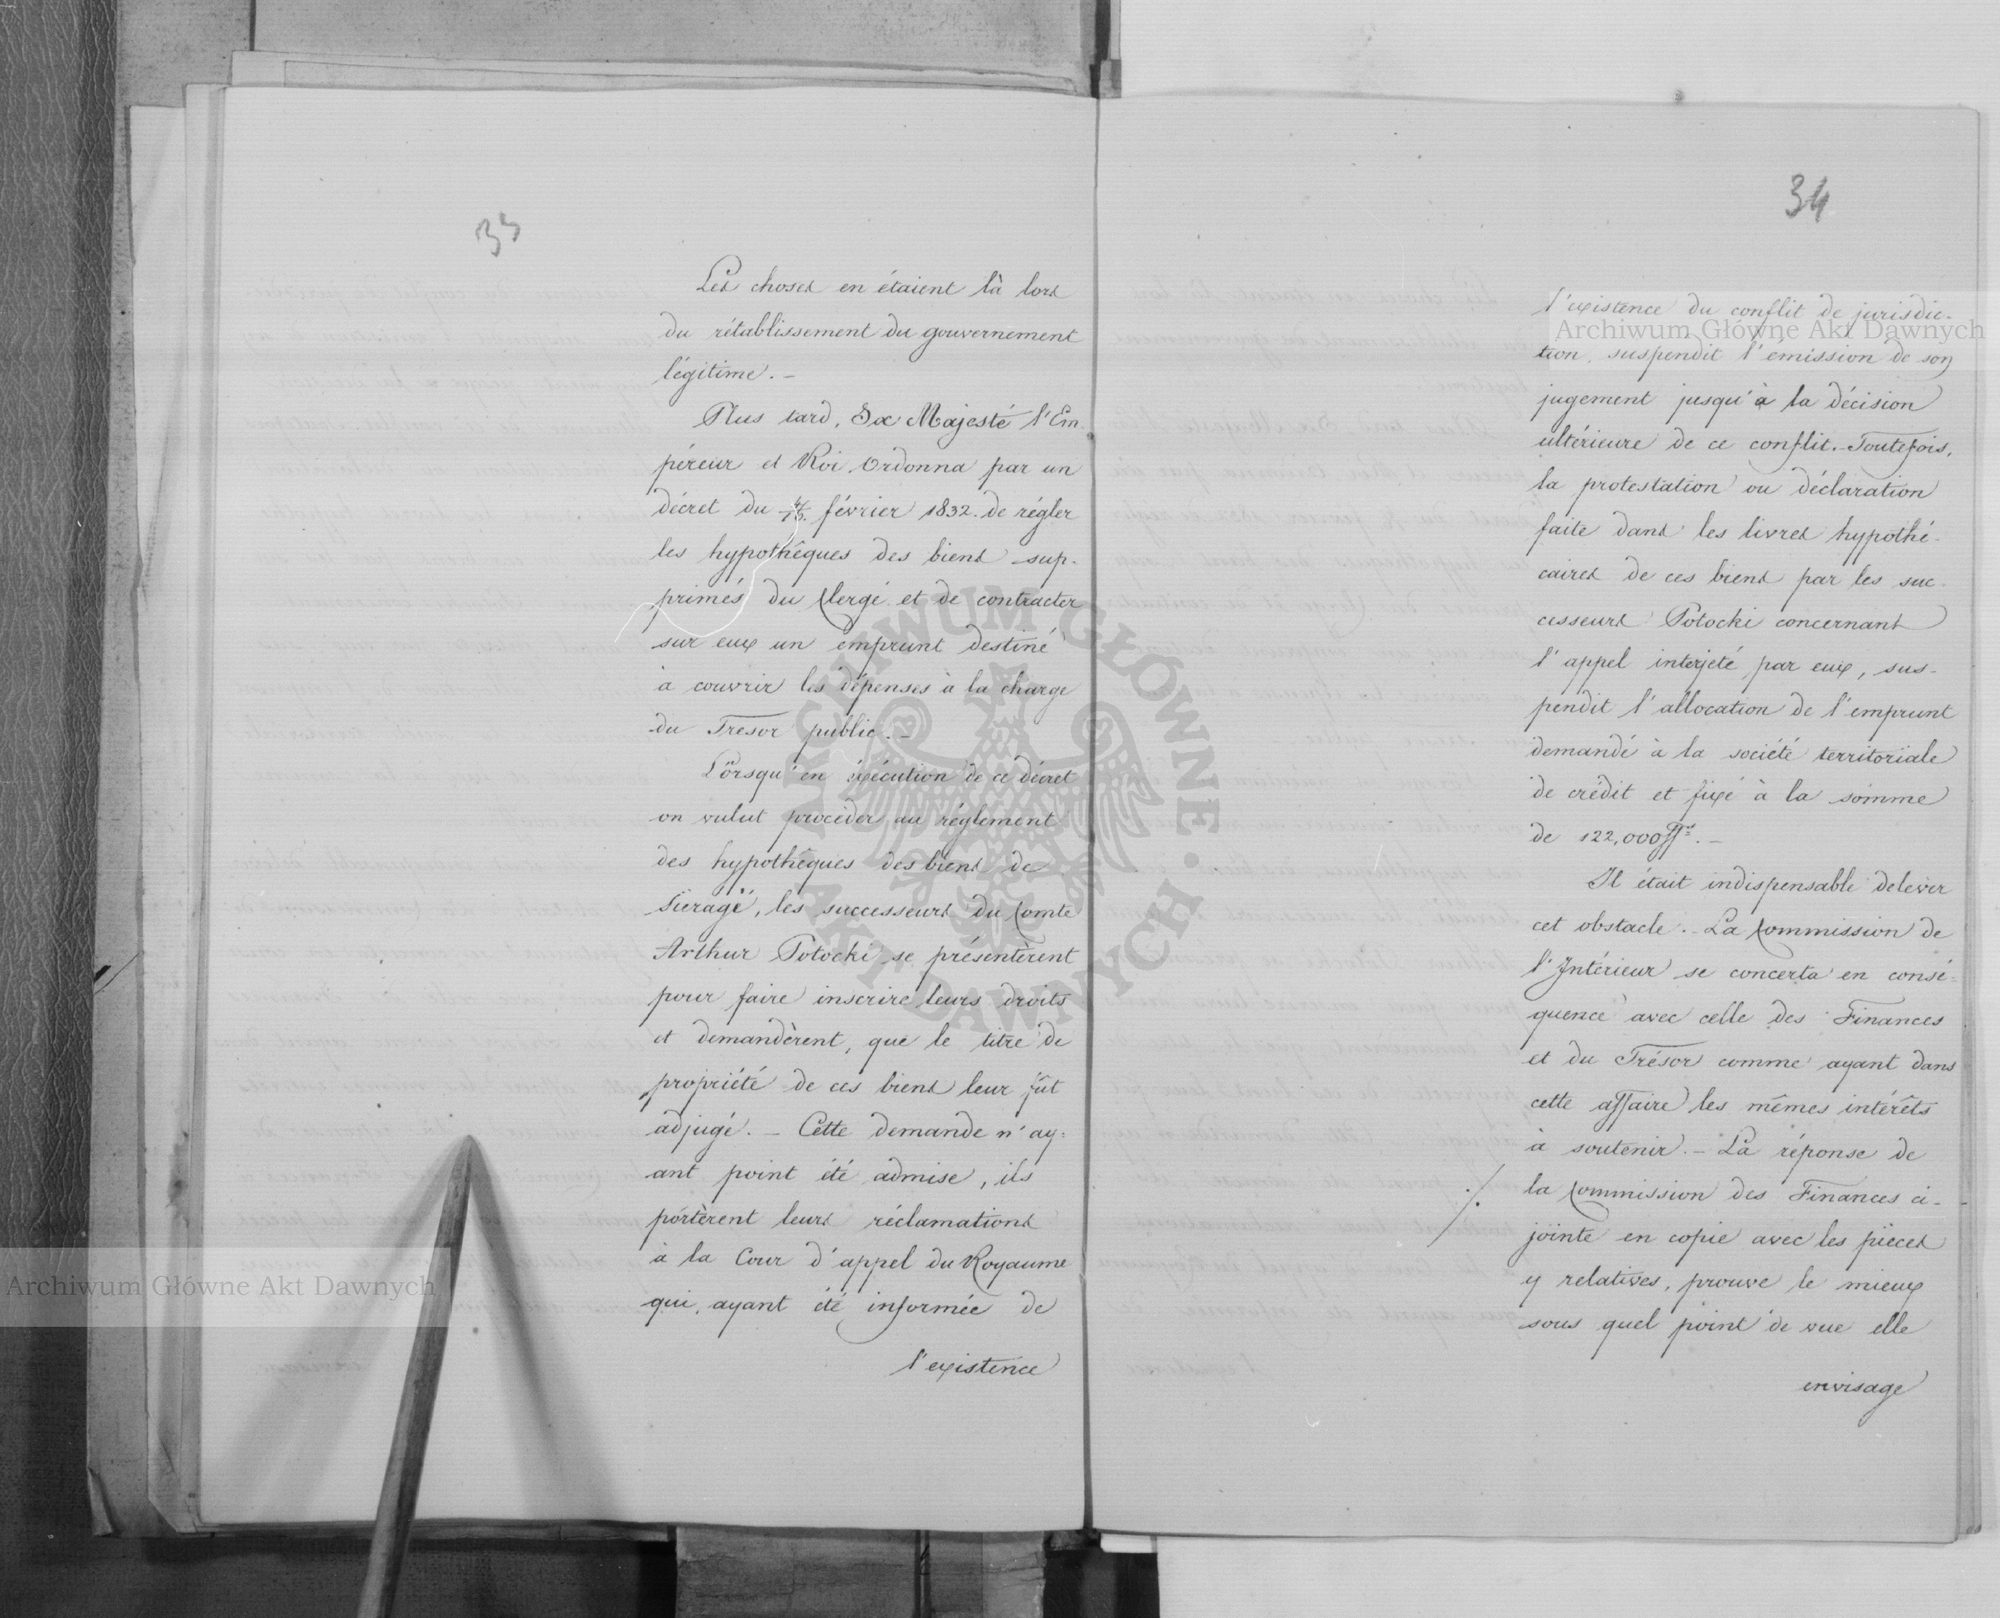 33
Les choses en étaient là lors
du rétablissement du gouvernement
légitime. —
Plus tard, Sa Majesté l'Em
péreur et Roi ordonna par un
décret du 4/16. février 1832. de régler
les hypothêques des biens sup-
primés du Clergé et de contracter
sur eux un emprunt destiné
à couvrir les dépenses à la charge
du Tresor public. —
Lorsqu'en éxécution de ce décret
on vulut procéder au réglement
des hypothêques des biens de
les successeurs du Comte
Arthur Potocki se présentèrent
pour faire inscrire leurs droits
et demandèrent, que le titre de
propriété de ces biens leur fût
adjugé. — Cette demande n'ay=
ant point été admise, ils
portèrent leurs réclamations
à la Cour d'appel du Royaume
qui, ayant été informée de
l'existence
34
l'existence du conflit de jurisdic-
tion, suspendit l'émission de son
jugement jusqu'à la décision
ultérieure de ce conflit. — Toutefois,
la protestation ou déclaration
faite dans les livres hypothé-
caires de ces biens par les suc
cesseurs Potocki concernant
l'appel interjeté par eux, sus-
pendit l'allocation de l'emprunt
demandé à la société territoriale
de crédit et fixé à la somme
de 122,000 —
Il était indispensable delever
cet obstacle. — La Commission de
l'Intérieur se concerta en consé=
quence avec celle des Finances
et du Trésor comme ayant dans
cette affaire les mêmes intérêts
à soutenir. — La réponse de
./. la Commission des Finances ci-
jointe en copie avec les pièces
y relatives, prouve le mieux
sous quel point de vue elle
envisage
Archiwum Główne Akt Dawnych
Archiwum Główne Akt Dawnych
ARCHIWUM GŁÓWNE · AKT DAWNYCH ·